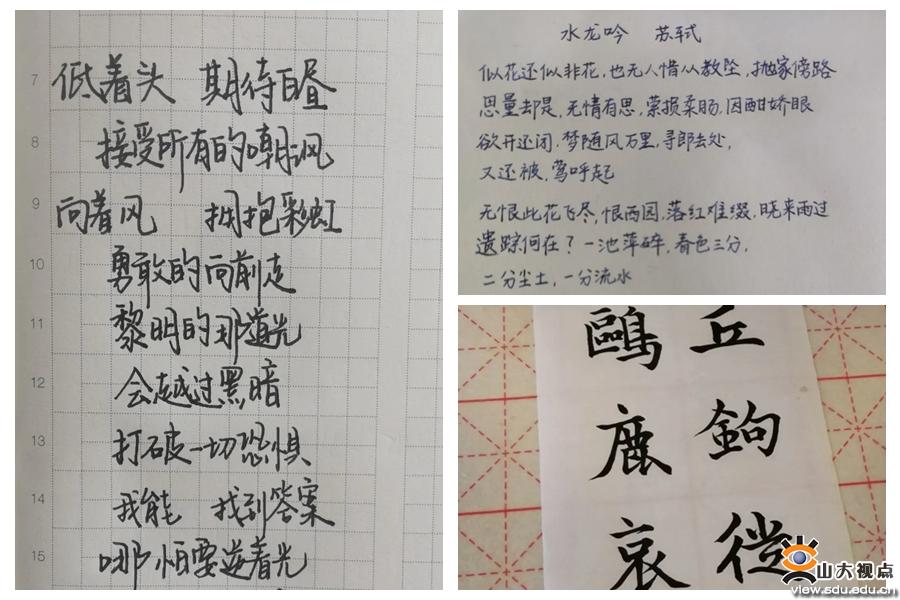 7 低着头 期待白昼
8 接受所有的嘲讽
9 向着风 拥抱彩虹
10 勇敢的向前走
11 黎明的那道光
12 会越过黑暗
13 打破一切恐惧
14 我能 找到答案
15 哪怕要逆着光
水龙吟 苏轼
似花还似非花，也无人惜从教坠，抛家傍路
思量却是，无情有思，萦损柔肠，困酣娇眼
欲开还闭，梦随风万里，寻郎去处，
又还被，莺呼起
无恨此花飞尽，恨西园，落红难缀，晓来雨过
遗踪何在？一池萍碎，春色三分，
二分尘土，一分流水
丘鉤
鷗鹿哀
山大视点
view.sdu.edu.cn